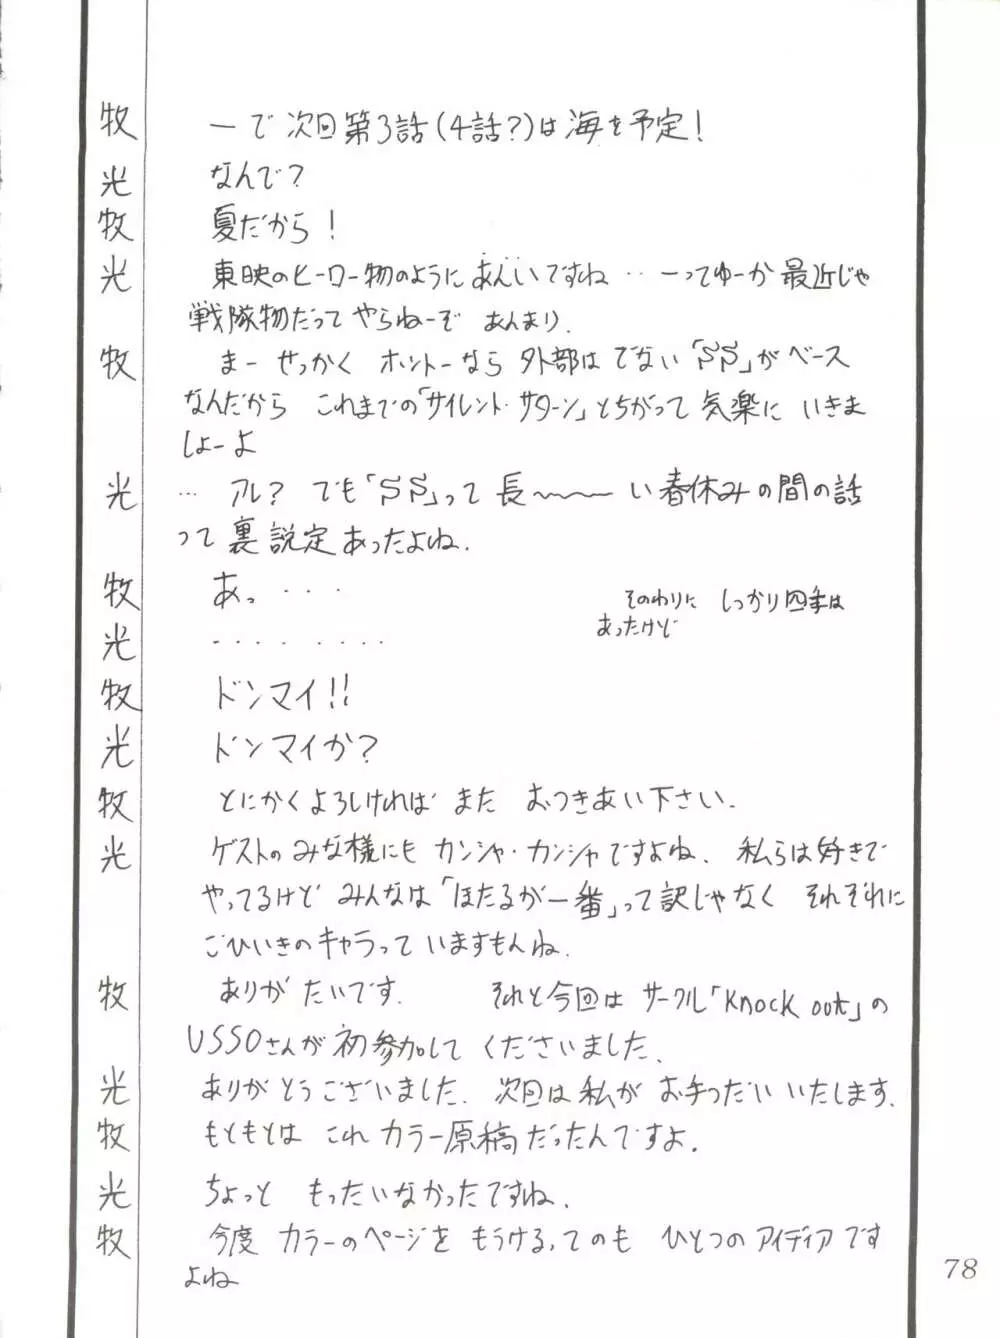 牧 ーで 次回第3話(4話?)は海を予定!
光 なんで?
牧 夏だから!
光 東映のヒーロー物のように あんいですね… ーってゆーか 最近じゃ
戦隊物だって やらねーぞ あんまり.
牧 まー せっかく ホントーなら 外部は でない「SS」がベース
なんだから これまでの「サイレント・サターン」とちがって 気楽に いきま
しょーよ
光 … アレ? でも「SS」って 長〜〜〜い 春休みの間の話
って 裏設定あったよね.
牧 あっ・・・
そのわりに しっかり四季は
あったけど
光 ・・・・・・・・
牧 ドンマイ!!
光 ドンマイか?
牧 とにかくよろしければ また おつきあい下さい.
光 ゲストの みな様にも カンシャ・カンシャですよね. 私らは好きで
やってるけど みんなは「ほたるが一番」って訳じゃなく それぞれに
ごひいきのキャラって いますもんね.
牧 ありがたいです. それと今回は サークル「Knock out」の
USSOさんが 初参加して くださいました.
光 ありがとうございました. 次回は私が お手つだい いたします.
牧 もともとは これ カラー原稿だったんですよ.
光 ちょっと もったいなかったですね.
牧 今度 カラーのページを もうける,てのも ひとつの アイディアです
よね
78